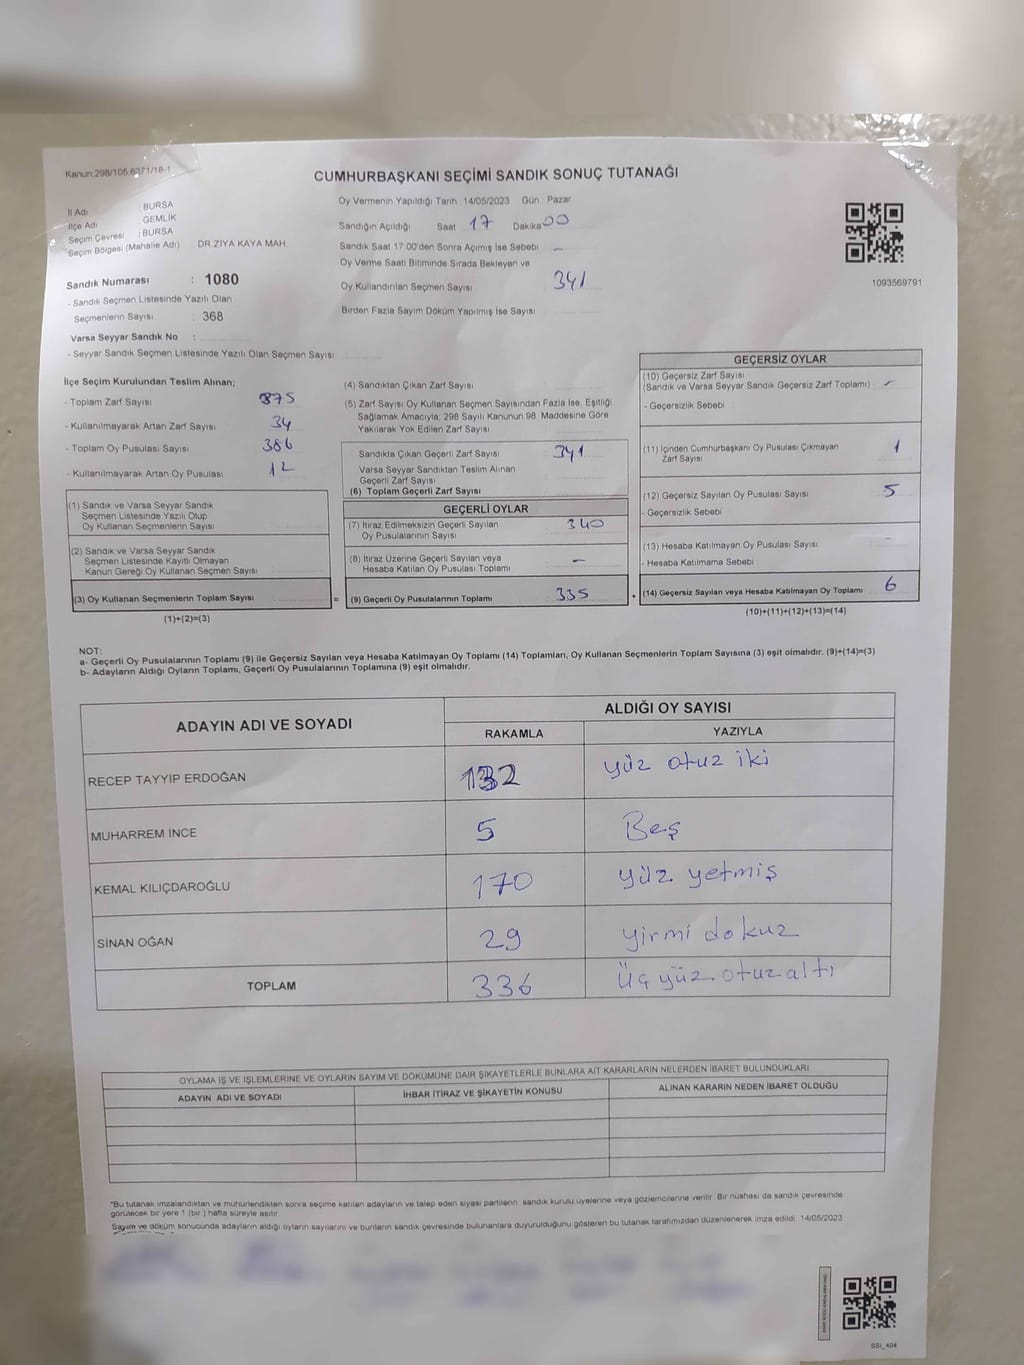 Kanun:298/105.6271/18-1
CUMHURBAŞKANI SEÇİMİ SANDIK SONUÇ TUTANAĞI
İl Adı : BURSA
İlçe Adı : GEMLİK
Seçim Çevresi : BURSA
Seçim Bölgesi (Mahalle Adı) : DR.ZİYA KAYA MAH.
Oy Vermenin Yapıldığı Tarih 14/05/2023 Gün Pazar
Sandığın Açıldığı Saat 17 Dakika 00
Sandık Saat 17:00'den Sonra Açımış İse Sebebi –
Oy Verme Saati Bitiminde Sırada Bekleyen ve
Oy Kullandırılan Seçmen Sayısı 341
Birden Fazla Sayım Döküm Yapılmış İse Sayısı
1093569791
Sandık Numarası : 1080
- Sandık Seçmen Listesinde Yazılı Olan
Seçmenlerin Sayısı : 368
Varsa Seyyar Sandık No :
- Seyyar Sandık Seçmen Listesinde Yazılı Olan Seçmen Sayısı
İlçe Seçim Kurulundan Teslim Alınan;
- Toplam Zarf Sayısı 875
- Kullanılmayarak Artan Zarf Sayısı 34
- Toplam Oy Pusulası Sayısı 386
- Kullanılmayarak Artan Oy Pusulası 12
(1) Sandık ve Varsa Seyyar Sandık
Seçmen Listesinde Yazılı Olup
Oy Kullanan Seçmenlerin Sayısı
(2) Sandık ve Varsa Seyyar Sandık
Seçmen Listesinde Kayıtlı Olmayan
Kanun Gereği Oy Kullanan Seçmen Sayısı
(3) Oy Kullanan Seçmenlerin Toplam Sayısı =
(1)+(2)=(3)
(4) Sandıktan Çıkan Zarf Sayısı
(5) Zarf Sayısı Oy Kullanan Seçmen Sayısından Fazla İse, Eşitliği
Sağlamak Amacıyla, 298 Sayılı Kanunun 98. Maddesine Göre
Yakılarak Yok Edilen Zarf Sayısı
Sandıkta Çıkan Geçerli Zarf Sayısı 341
Varsa Seyyar Sandıktan Teslim Alınan
Geçerli Zarf Sayısı
(6) Toplam Geçerli Zarf Sayısı
GEÇERLİ OYLAR
(7) İtiraz Edilmeksizin Geçerli Sayılan 340
Oy Pusulalarının Sayısı
(8) İtiraz Üzerine Geçerli Sayılan veya –
Hesaba Katılan Oy Pusulası Toplamı
(9) Geçerli Oy Pusulalarının Toplamı 335 +
GEÇERSİZ OYLAR
(10) Geçersiz Zarf Sayısı
(Sandık ve Varsa Seyyar Sandık Geçersiz Zarf Toplamı) –
- Geçersizlik Sebebi
(11) İçinden Cumhurbaşkanı Oy Pusulası Çıkmayan 1
Zarf Sayısı
(12) Geçersiz Sayılan Oy Pusulası Sayısı 5
- Geçersizlik Sebebi
(13) Hesaba Katılmayan Oy Pusulası Sayısı –
- Hesaba Katılmama Sebebi
(14) Geçersiz Sayılan veya Hesaba Katılmayan Oy Toplamı 6
(10)+(11)+(12)+(13)=(14)
NOT:
a- Geçerli Oy Pusulalarının Toplamı (9) ile Geçersiz Sayılan veya Hesaba Katılmayan Oy Toplamı (14) Toplamları, Oy Kullanan Seçmenlerin Toplam Sayısına (3) eşit olmalıdır. (9)+(14)=(3)
b- Adayların Aldığı Oyların Toplamı, Geçerli Oy Pusulalarının Toplamına (9) eşit olmalıdır.
ADAYIN ADI VE SOYADI
ALDIĞI OY SAYISI
RAKAMLA YAZIYLA
RECEP TAYYİP ERDOĞAN 132 yüz otuz iki
MUHARREM İNCE 5 Beş
KEMAL KILIÇDAROĞLU 170 yüz yetmiş
SİNAN OĞAN 29 yirmi dokuz
TOPLAM 336 Üç yüz otuz altı
OYLAMA İŞ VE İŞLEMLERİNE VE OYLARIN SAYIM VE DÖKÜMÜNE DAİR ŞİKAYETLERLE BUNLARA AİT KARARLARIN NELERDEN İBARET BULUNDUKLARI
ADAYIN ADI VE SOYADI İHBAR İTİRAZ VE ŞİKAYETİN KONUSU ALINAN KARARIN NEDEN İBARET OLDUĞU
*Bu tutanak imzalandıktan ve mühürlendikten sonra seçime katılan adayların ve talep eden siyasi partilerin sandık kurulu üyelerine veya gözlemcilerine verilir. Bir nüshası da sandık çevresinde
görülecek bir yere 1 (bir ) hafta süreyle asılır
Sayım ve döküm sonucunda adayların aldığı oyların sayılarını ve bunların sandık çevresinde bulunanlara duyurulduğunu gösteren bu tutanak tarafımızdan düzenlenerek imza edildi. 14/05/2023
SSİ_404